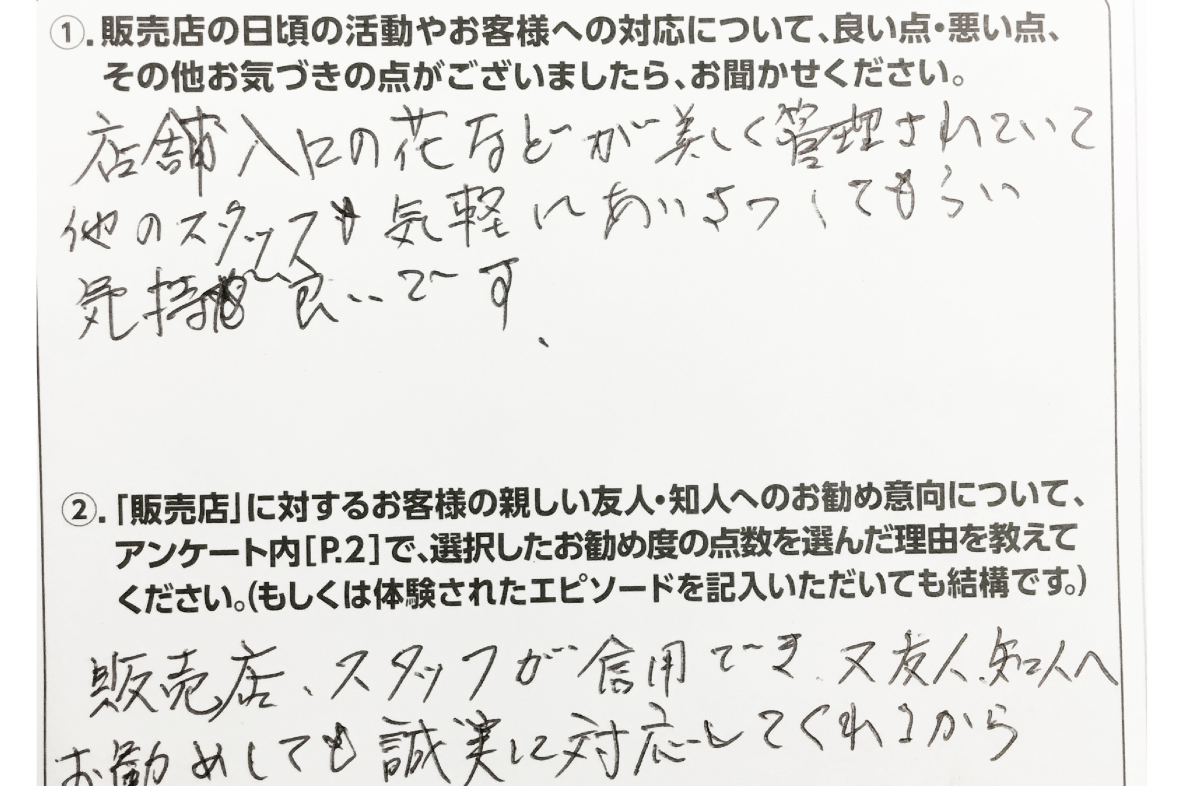 ①.販売店の日頃の活動やお客様への対応について、良い点・悪い点、
その他お気づきの点がございましたら、お聞かせください。
店舗入口の花などが美しく管理されていて
他のスタッフも気軽にあいさつしてもらい
気持良いです、
②.「販売店」に対するお客様の親しい友人・知人へのお勧め意向について、
アンケート内[P.2]で、選択したお勧め度の点数を選んだ理由を教えて
ください。(もしくは体験されたエピソードを記入いただいても結構です。)
販売店、スタッフが信用でき、又友人、知人へ
お勧めしても誠実に対応してくれるから